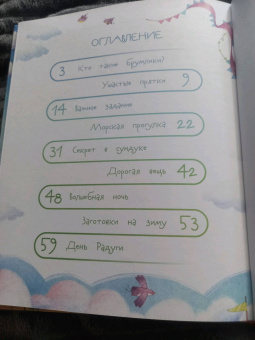 ОГЛАВЛЕНИЕ
3 Кто такие Брумлики?
Ушастые прятки 9
14 Важное задание
Морская прогулка 22
31 Секрет в сундуке
Дорогая вещь 42
48 Волшебная ночь
Заготовки на зиму 53
59 День Радуги